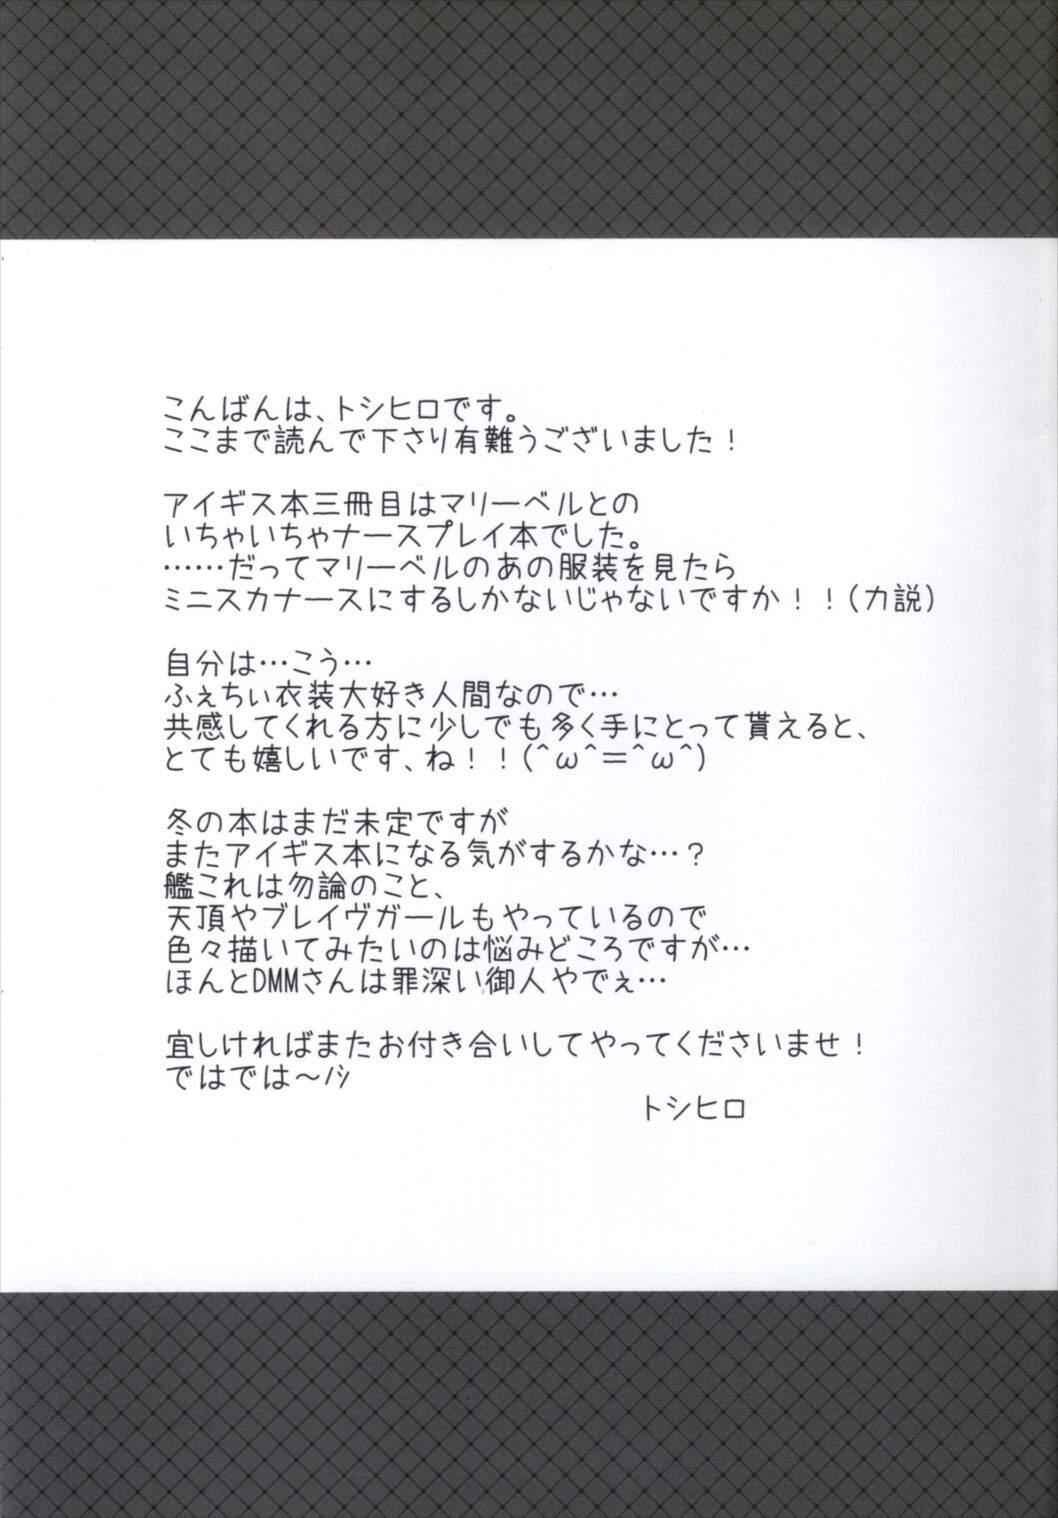 こんばんは、トシヒロです。
ここまで読んで下さり有難うございました！
アイギス本三冊目はマリーベルとの
いちゃいちゃナースプレイ本でした。
……だってマリーベルのあの服装を見たら
ミニスカナースにするしかないじゃないですか！！（力説）
自分は…こう…
ふぇちぃ衣装大好き人間なので…
共感してくれる方に少しでも多く手にとって貰えると、
とても嬉しいです、ね！！(＾ω＾＝＾ω＾)
冬の本はまだ未定ですが
またアイギス本になる気がするかな…？
艦これは勿論のこと、
天頂やブレイヴガールもやっているので
色々描いてみたいのは悩みどころですが…
ほんとDMMさんは罪深い御人やでぇ…
宜しければまたお付き合いしてやってくださいませ！
ではでは～ﾉｼ
トシヒロ